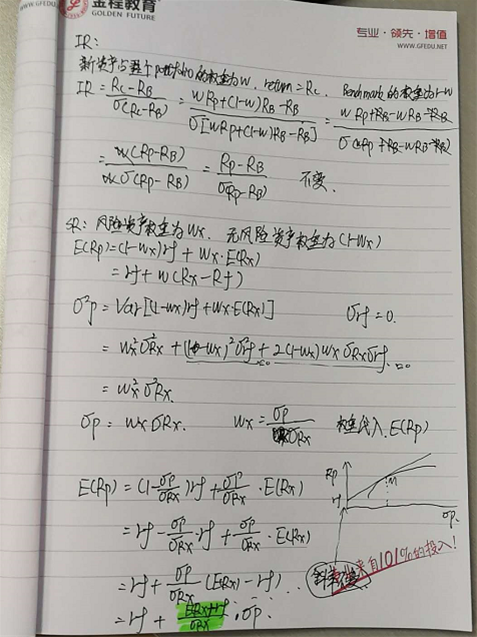 金程教育
WWW.GFEDU.NET
GOLDEN FUTURE
专业·领先·增值
WWW.GFEDU.NET
IR:
新资产占整个portfolio的权重为w, return = Rc, Benchmark的权重为1-w
IR = (Rc-RB)/σ(Rc-RB) = (wRp+(1-w)RB-RB)/σ[wRp+(1-w)RB-RB] = (wRp+RB-wRB-RB)/σ(wRp+RB-wRB-RB)
= w(Rp-RB)/wσ(Rp-RB) = (Rp-RB)/σ(Rp-RB) 不变.
SR: 风险资产权重为Wx. 无风险资产权重为(1-Wx)
E(Rp)=(1-Wx)rf + Wx·E(Rx)
= rf + w(Rx-Rf)
σ²p = Var[(1-wx)rf+wx·E(Rx)] σrf = 0.
= wx²σ²Rx + (1-wx)²σ²rf + 2(1-wx)wxσRxσrf =0 =0
= wx²σ²Rx.
σp = wxσRx. wx = σp/σRx 权重代入E(Rp)
E(Rp) = (1-σp/σRx)rf + σp/σRx·E(Rx)
= rf - σp/σRx·rf + σp/σRx·E(Rx)
= rf + σp/σRx(E(Rx)-rf)
= rf + (ERx-rf)/σRx·σp.
Rp
rf
M
σp.
斜率
来自101%的投入!